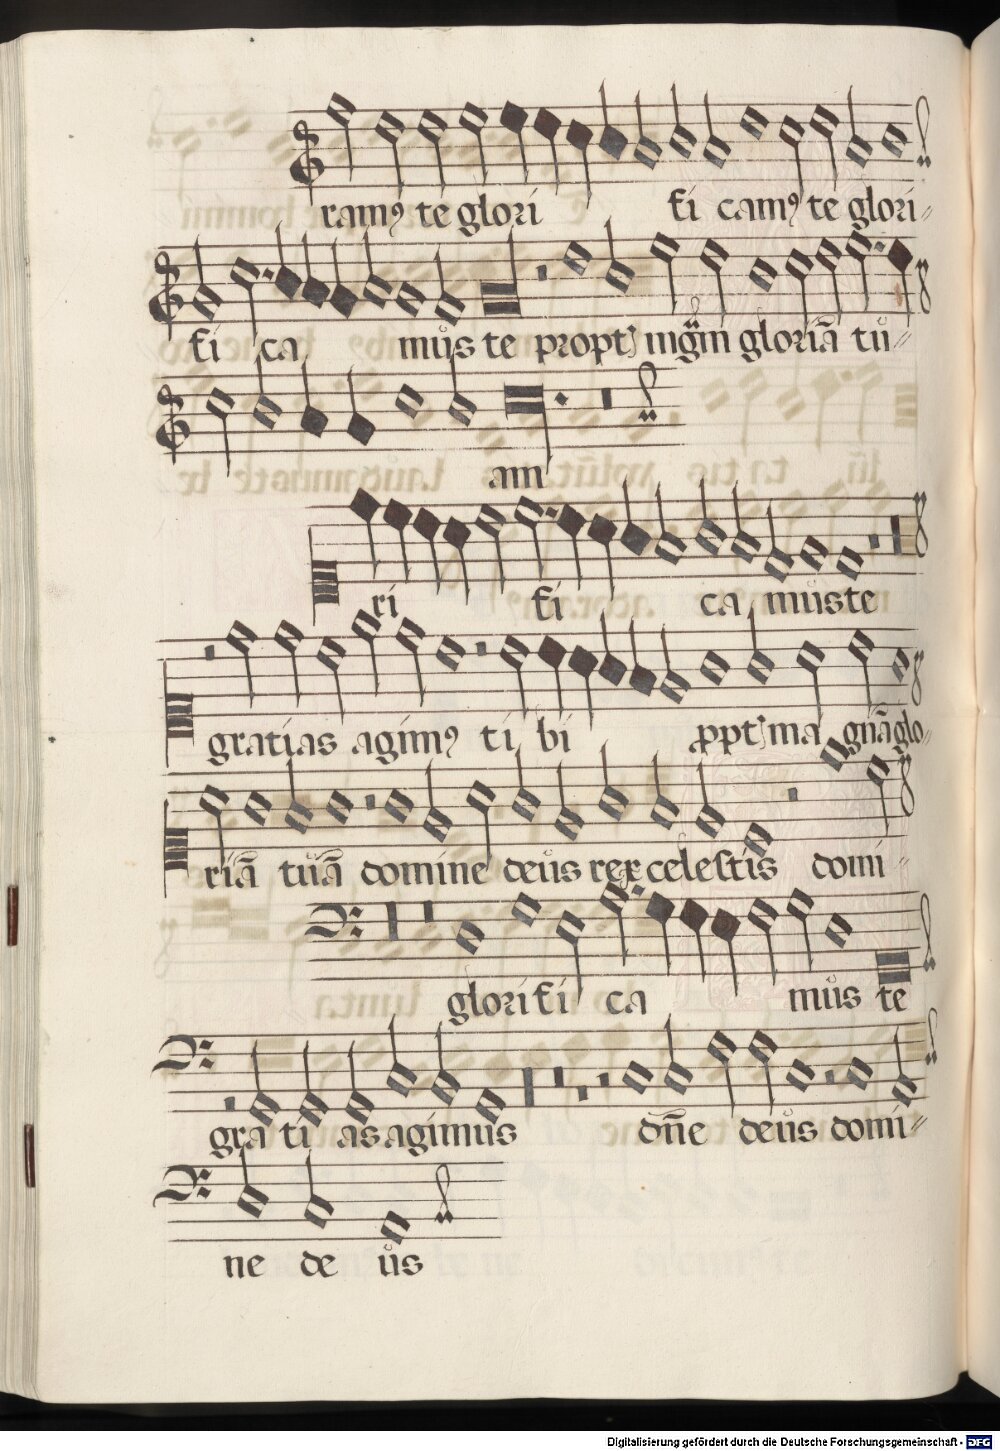 ramꝰ te glori fi camꝰ te glori⸗
fi ca mus te propt mgm gloriā tu⸗
am
ri fi ca mus te
gratias agimꝰ ti bi ppt ma gnā glo⸗
riā tuā domine deus rex celestis domi⸗
glorifi ca mus te
gra ti as agimus dn̄e deus domi⸗
ne de us
Digitalisierung gefördert durch die Deutsche Forschungsgemeinschaft - DFG